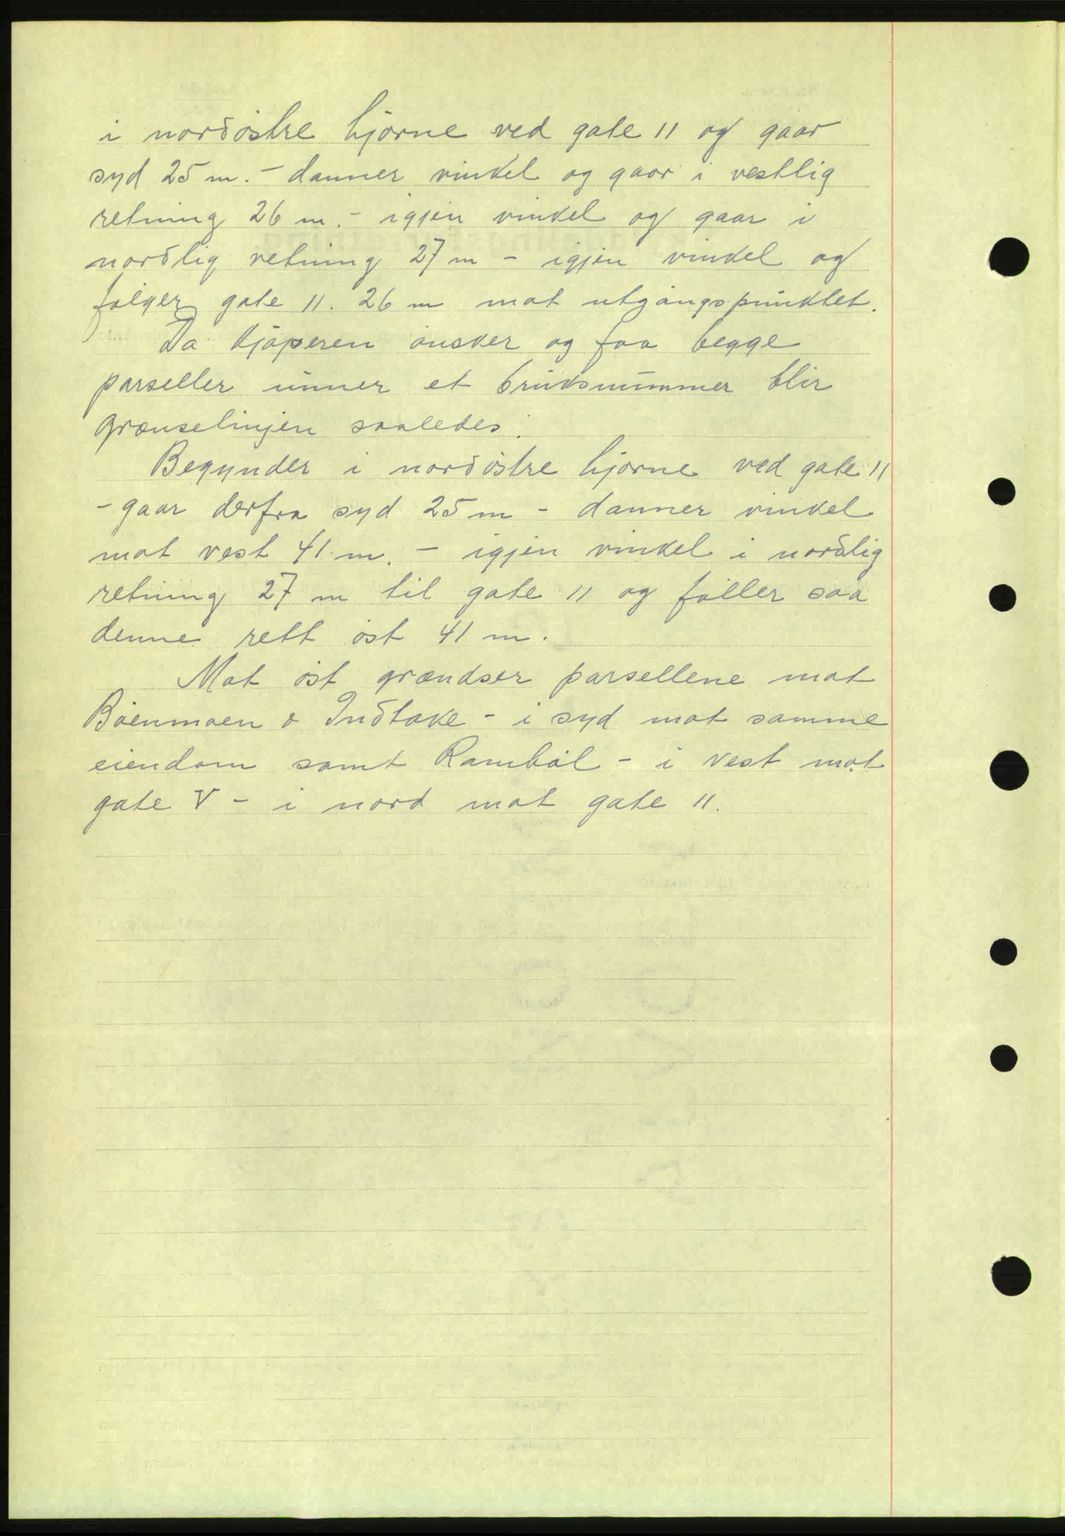 i nordöstre hjörne ved gate 11 og gaar
syd 25 m. - danner vinkel og gaar i vestlig
retning 26 m. - igjen vinkel og gaar i
nordlig retning 27 m - igjen vinkel og
fölger gate 11. 26 m mot utgangspunktet.
Da kjöperen önsker og faa begge
parseller unner et bruksnummer blir
grænselinjen saaledes:
Begynder i nordöstre hjörne ved gate 11
- gaar derfra syd 25 m - danner vinkel
mot vest 41 m. - igjen vinkel i nordlig
retning 27 m til gate 11 og föller saa
denne rett öst 41 m.
Mot öst grændser parsellene mot
Böenmoen o Indtake - i syd mot samme
eiendom samt Ramböl - i vest mot
gate V - i nord mot gate 11.